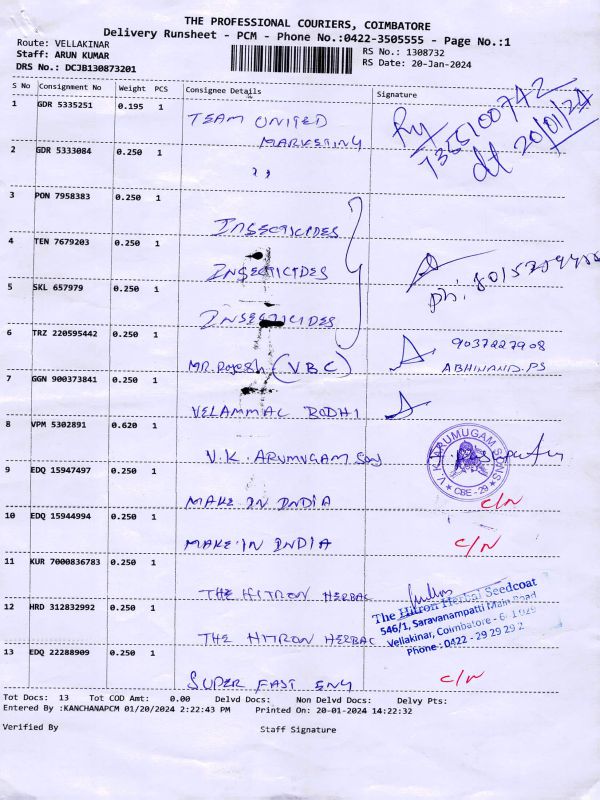 THE PROFESSIONAL COURIERS, COIMBATORE
Delivery Runsheet - PCM - Phone No.:0422-3505555 - Page No.:1
Route: VELLAKINAR
Staff: ARUN KUMAR
DRS No.: DCJB130873201
RS No.: 1308732
RS Date: 20-Jan-2024
S No Consignment No Weight PCS Consignee Details Signature
1 GDR 5335251 0.195 1 TEAM UNITED
MARKETING
7355100742
dt 20/01/24
2 GDR 5333084 0.250 1 ,,
3 PON 7958383 0.250 1 INSECTICIDES
4 TEN 7679203 0.250 1 INSECTICIDES
ph:
5 SKL 657979 0.250 1 INSECTICIDES
6 TRZ 220595442 0.250 1 MR. Rajesh (VBC) 9037227908
ABHINAND.PS
7 GGN 900373841 0.250 1 VELAMMAL BODHI
8 VPM 5302891 0.620 1 V.K. ARUMUGAM Sons
V.K. ARUMUGAM SONS
★ CBE - 29 ★
9 EDQ 15947497 0.250 1 MAKE IN INDIA C/N
10 EDQ 15944994 0.250 1 MAKE IN INDIA C/N
11 KUR 7000836783 0.250 1 THE HITRON HERBAL
The Hitron Herbal Seedcoat
546/1, Saravanampatti Main Road
Vellakinar, Coimbatore - 6 1 029
Phone : 0422 - 29 29 29 2
12 HRD 312832992 0.250 1 THE HITRON HERBAL
13 EDQ 22288909 0.250 1 SUPER FAST ENG C/N
Tot Docs: 13 Tot COD Amt: 0.00 Delvd Docs: Non Delvd Docs: Delvy Pts:
Entered By :KANCHANAPCM 01/20/2024 2:22:43 PM Printed On: 20-01-2024 14:22:32
Verified By Staff Signature